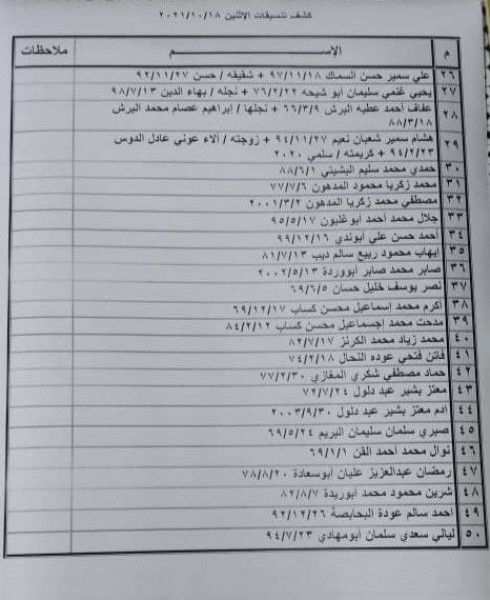 كشف تنسيقات الاثنين ٢٠٢١/١٠/١٨
م الإســــم ملاحظات
٢٦ علي سمير حسن السماك ٩٧/١١/١٨ + شقيقه / حسن ٩٢/١١/٢٧
٢٧ يحيى غنمي سليمان ابو شيحه ٧٦/٢/٢٢ + نجله / بهاء الدين ٩٨/٧/١٣
٢٨ عفاف أحمد عطيه البرش ٦٦/٣/٩ + نجلها / إبراهيم عصام محمد البرش
٨٨/٣/١٨
٢٩ هشام سمير شعبان نعيم ٩٤/١١/٢٧ + زوجته / آلاء عوني عادل الدوس
٩٤/٢/٢٣ + كريمته / سلمي ٢٠٢٠
٣٠ حمدي محمد سليم البشيتي ٨٨/٦/١
٣١ محمد زكريا محمود المدهون ٧٧/٧/٦
٣٢ مصطفي محمد زكريا المدهون ٢٠٠١/٣/٢
٣٣ جلال محمد أحمد أبوغليون ٩٥/٥/١٧
٣٤ أحمد حسن علي أبوندي ٩٩/١٢/١٦
٣٥ إيهاب محمود ربيع سالم ديب ٨١/٧/١٣
٣٦ صابر محمد صابر أبووردة ٢٠٠٢/٥/١٣
٣٧ نصر يوسف خليل حسان ٦٩/٦/٥
٣٨ أكرم محمد اسماعيل محسن كساب ٦٩/١٢/١٧
٣٩ مدحت محمد إجسماعيل محسن كساب ٨٤/٢/١٢
٤٠ محمد زياد محمد الكرنز ٨٢/٧/١٧
٤١ فاتن فتحي عوده النحال ٧٤/٢/١٨
٤٢ حماد مصطفي شكري المغازي ٧٧/٢/٣٠
٤٣ معتز بشير عبد دلول ٧٢/٧/٢٤
٤٤ ادم معتز بشير عبد دلول ٢٠٠٣/٩/٣٠
٤٥ صبري سلمان سليمان البريم ٦٩/٥/٢٤
٤٦ نوال محمد أحمد القن ٦٩/١/١
٤٧ رمضان عبدالعزيز عليان أبوسعادة ٧٨/٨/٢٠
٤٨ شرين محمود محمد ابوريدة ٨٢/٨/٧
٤٩ احمد سالم عودة البحابصة ٩٢/١٢/٢٦
٥٠ ليالي سعدي سلمان أبومهادي ٩٤/٧/٢٣